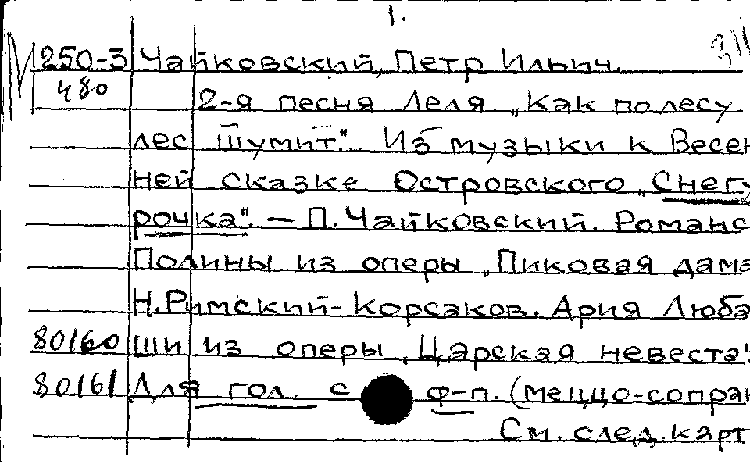 1.
250-3 Чайковский, Петр Ильич.
480 2-я песня Леля „Как по лесу
лес шумит". Из музыки к Весен
ней сказке Островского „Снегу
рочка". — П. Чайковский. Романс
Полины из оперы „Пиковая дама
Н. Римский-Корсаков. Ария Люба
80160 ши из оперы „Царская невеста".
80161 Для гол. с ф-п. (меццо-сопран
См. след. карт